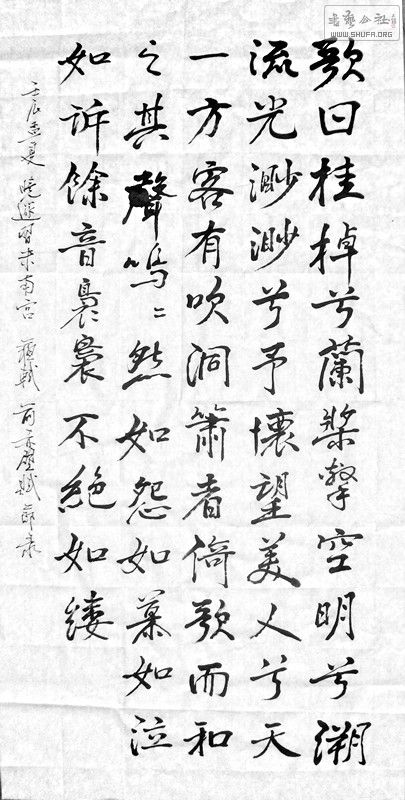 歌曰桂棹兮蘭槳擊空明兮溯
流光渺渺兮予懷望美人兮天
一方客有吹洞簫者倚歌而和
之其聲嗚〻然如怨如慕如泣
如訴餘音裊裊不絕如縷
壬辰孟夏習米南宮蘇軾前赤壁賦節录
書藝公社
WWW.SHUFA.ORG